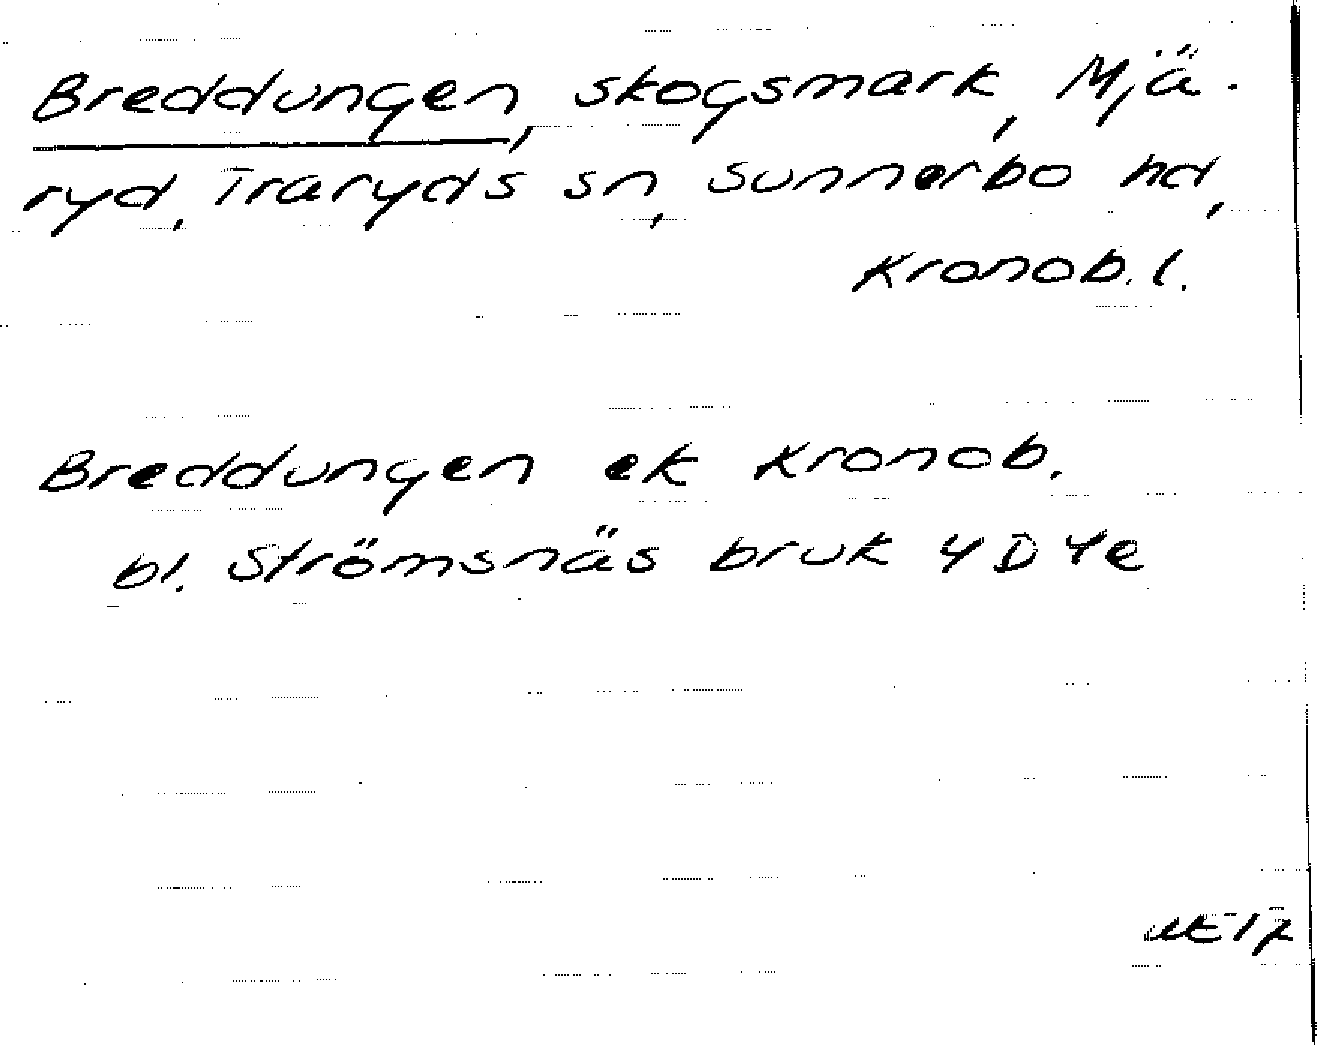 Breddungen, skogsmark, Mjä-
ryd, Traryds sn, Sunnerbo hd,
Kronob. l.
Breddungen ek Kronob.
bl. Strömsnäs bruk 4D4e